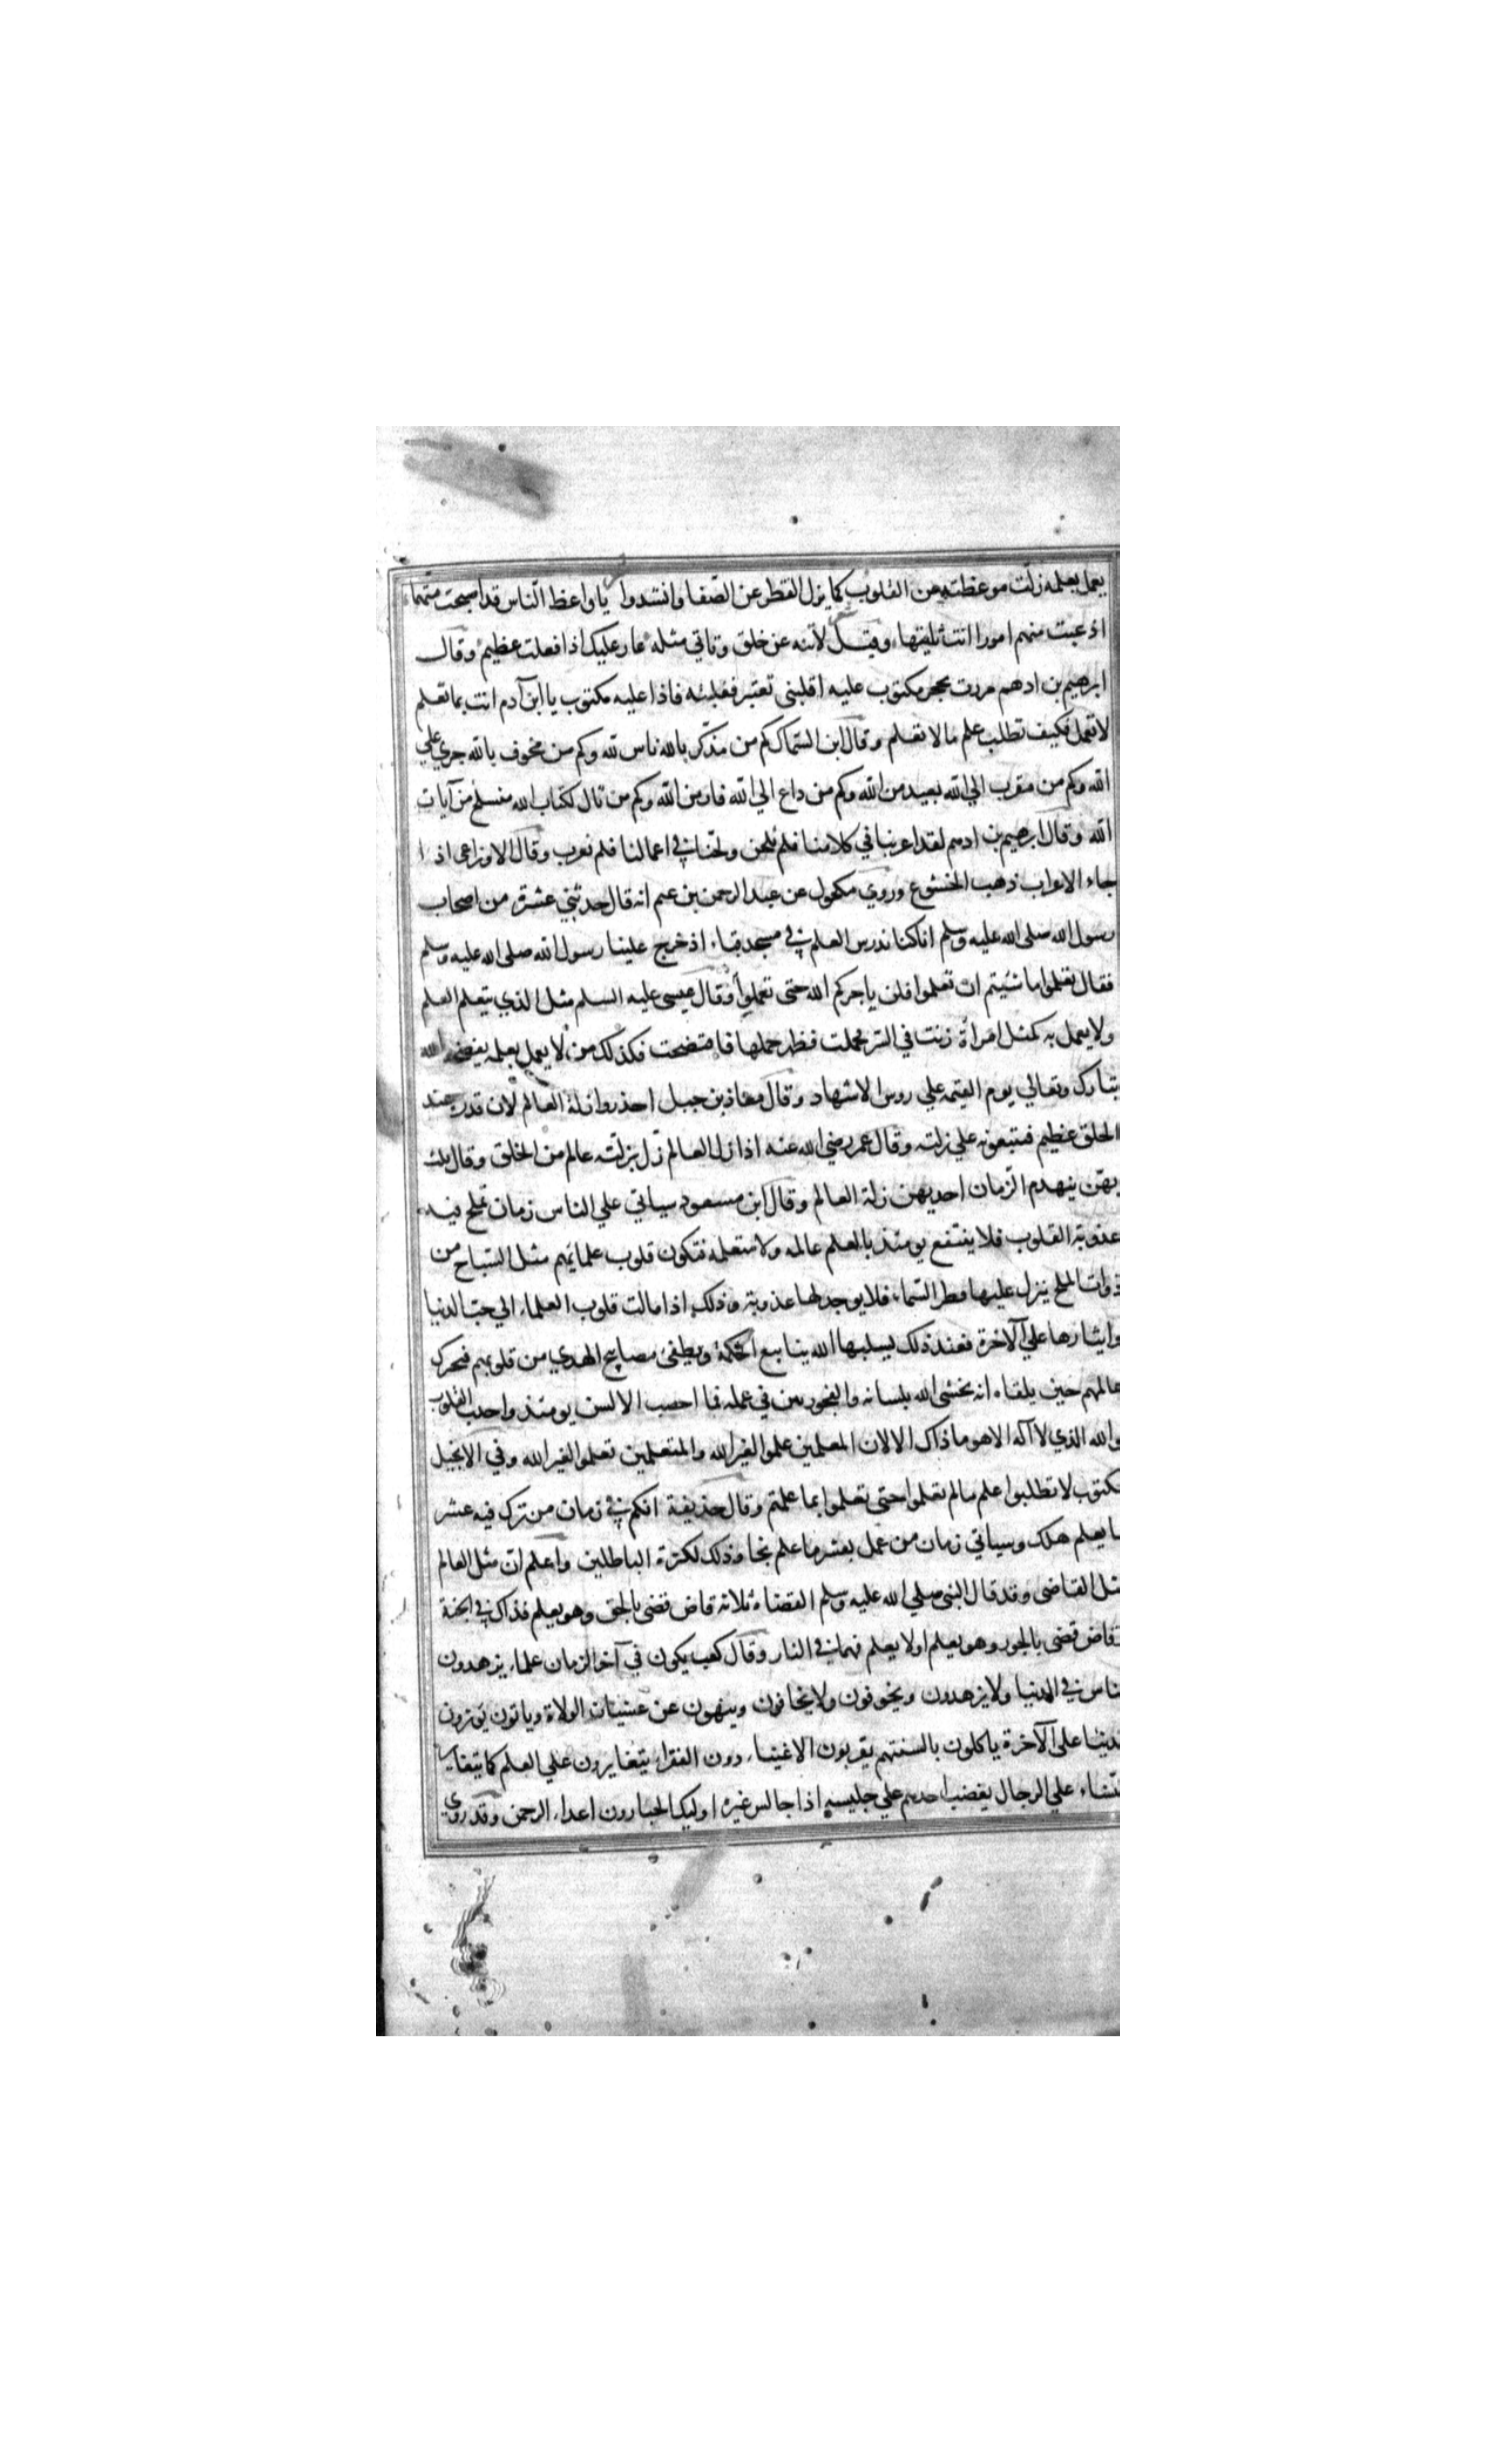 يعمل بعلمه زلّت موعظته عن القلوب كما يزل القطر عن الصّفا وانشدوا يا واعظ النّاس قد اصبحت متّهما
اذ عبت منهم امورا انت تاتيها وقيل لا تنه عن خلق وتاتي مثله عار عليك اذا فعلت عظيم وقال
ابرهيم بن ادهم مررت بحجر مكتوب عليه اقلبني تعتبر فقلبته فاذا عليه مكتوب يا ابن آدم انت بما تعلم
لا تعمل فكيف تطلب علم ما لا تعلم وقال ابن السّماك كم من مذكّر بالله ناس لله وكم من مخوف بالله جري علي
الله وكم من مقرب الي الله بعيد من الله وكم من داع الي الله فار من الله وكم من تال لكتاب الله منسلخ من آيات
الله وقال ابرهيم بن ادهم لقد اعربنا في كلامنا فلم نلحن ولحنا في اعمالنا فلم نعرب وقال الاوزاعي اذا
جاء الاعراب ذهب الخشوع وروي مكحول عن عبد الرحمن بن غنم انه قال حدثني عشرة من اصحاب
رسول الله صلى الله عليه وسلم انا كنا ندرس العلم في مسجد قباء اذ خرج علينا رسول الله صلى الله عليه وسلم
فقال تعلموا ما شيتم ان تعلموا فلن ياجركم الله حتى تعملوا وقال عيسى عليه السلم مثل الذي يتعلم العلم
ولا يعمل به كمثل امرأة زنت في السّر فحملت فظهر حملها فافتضحت فكذلك من لا يعمل بعلمه يفضحه الله
تبارك وتعالي يوم القيمة علي روس الاشهاد وقال معاذ بن جبل احذروا زلة العالم لان قدره عند
الخلق عظيم فيتبعونه علي زلته وقال عمر رضي الله عنه اذا زل العالم زّل بزلّته عالم من الخلق وقال ثلث
بهّن ينهدم الزمان احديهن زلة العالم وقال ابن مسعود سياتي علي الناس زمان تملح فيه
عذوبة القلوب فلا ينتفع يومئذ بالعلم عالمه ولا متعلمه فتكون قلوب علمايهم مثل السّباخ من
ذوات الملح ينزل عليها قطر السّماء فلا يوجد لها عذوبة وذلك اذا مالت قلوب العلماء الي حبّ الدنيا
وايثارها علي الآخرة فعند ذلك يسلبها الله ينابيع الحكمة ويطفئ مصابيح الهدي من قلوبهم فيخبرك
عالمهم حين يلقاه انه يخشى الله بلسانه والفجور بين في عمله فما اخصب الالسن يومئذ واجدب القلوب
والله الذي لا آله الا هو ما ذاك الا لان المعلمين علموا لغير الله والمتعلمين تعلموا لغير الله وفي الانجيل
مكتوب لا تطلبوا علم ما لم تعلموا حتى تعملوا بما علمتم وقال حذيفة انكم في زمان من ترك فيه عشر
ما يعلم هلك وسياتي زمان من عمل بعشر ما علم نجا وذلك لكثرة الباطلين واعلم ان مثل العالم
مثل القاضي وقد قال النبي صلي الله عليه وسلم القضاة ثلاثة قاض قضى بالحق وهو يعلم فذاك في الجنة
وقاض قضى بالجور وهو يعلم او لا يعلم فهما في النار وقال كعب يكون في آخر الزمان علماء يزهدون
الناس في الدنيا ولا يزهدون ويخوفون ولا يخافون وينهون عن غشيان الولاة وياتون يوثرون
الدنيا على الآخرة ياكلون بالسنتهم يقربون الاغنياء دون الفقراء يتغايرون علي العلم كما يتغاير
النّساء علي الرجال يغضب احدهم علي جليسه اذا جالس غيره اوليك الجبارون اعداء الرحمن وقد روي